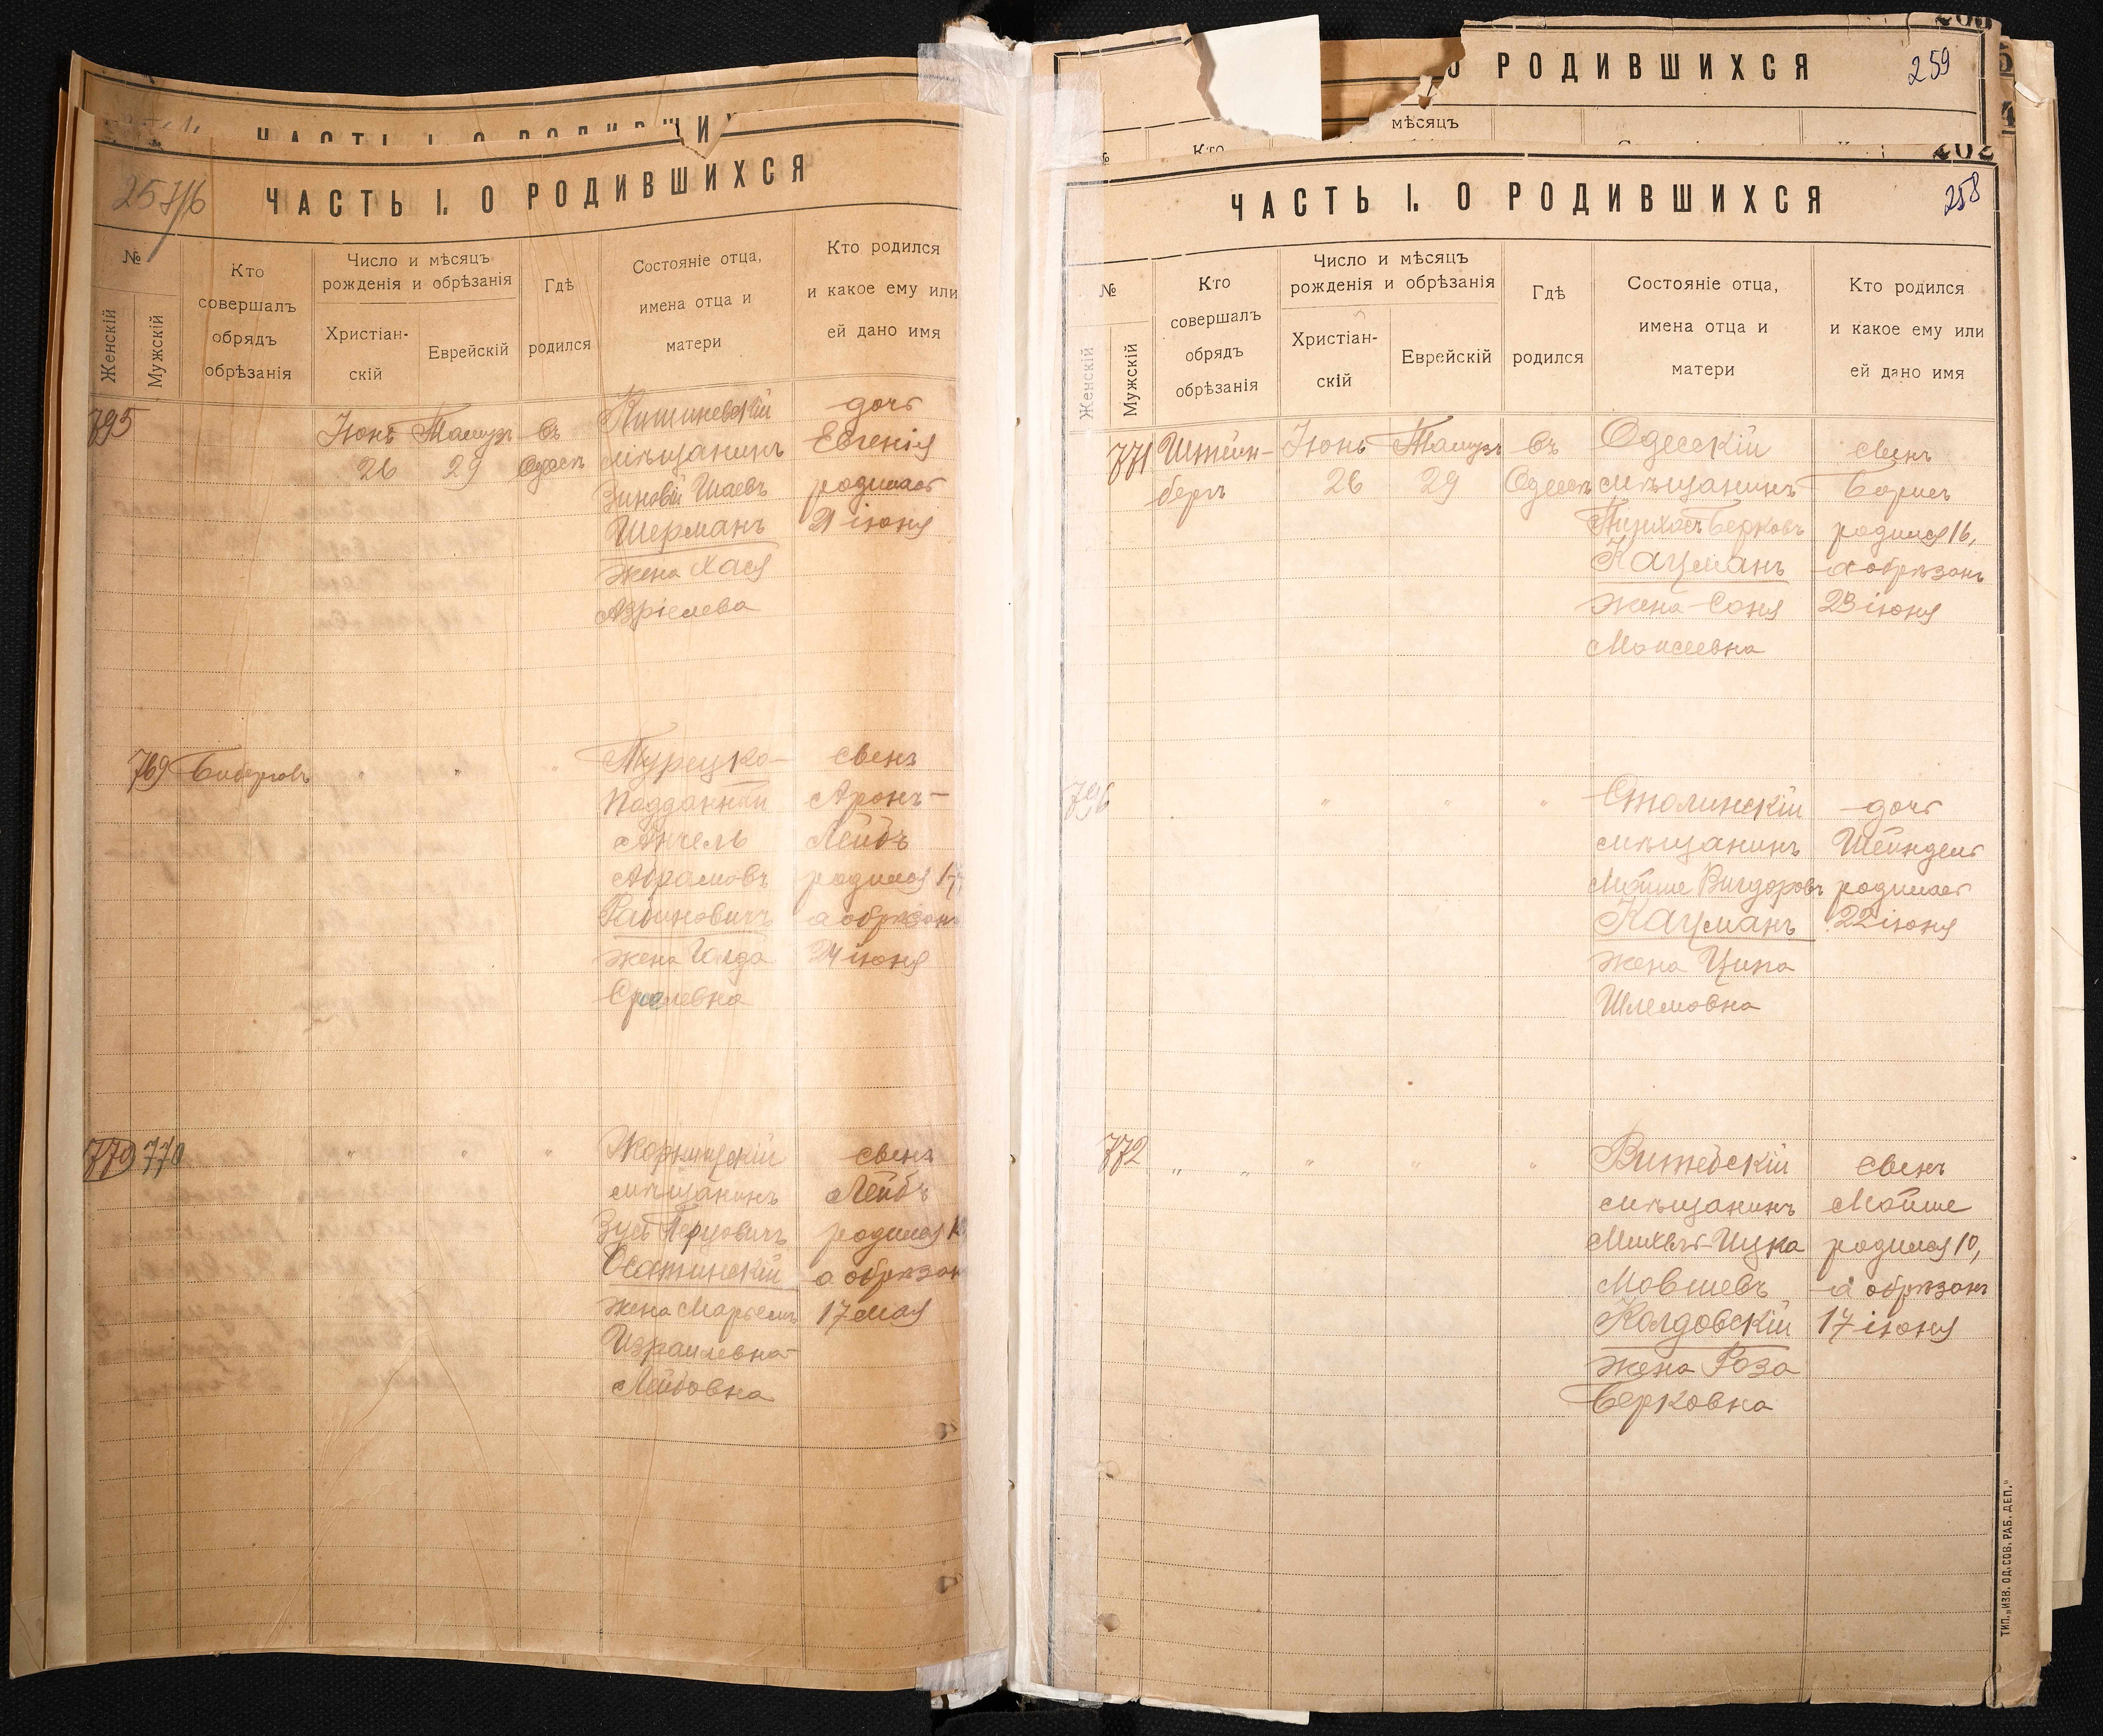 ЧАСТЬ I. О РОДИВШИ
257/б
ЧАСТЬ I. О РОДИВШИХСЯ
№
Женскій
Мужскій
Кто
совершалъ
обрядъ
обрѣзанія
Число и мѣсяцъ
рожденія и обрѣзанія
Христіан-
скій
Еврейскій
Гдѣ
родился
Состояніе отца,
имена отца и
матери
Кто родился
и какое ему или
ей дано имя
795
Іюнь
26
Тамузъ
29
Въ
Одессѣ
Кишиневскій
мѣщанинъ
Зиновій Шаевъ
Шерманъ
жена Хася
Азріелева
дочь
Евгенія
родилась
21 іюня
769
"
"
"
Турецко-
подданный
Анчель
Абрамовъ
Рабиновичъ
жена Голда
Срулевна
сынъ
Аронъ-
Лейбъ
родился 17,
а обрѣзанъ
24 іюня
779 770
"
"
"
мѣщанинъ
Зусь Перцовичъ
жена Марьемъ
Израилевна-
Лейбовна
сынъ
Лейбъ
родился
а обрѣзан
17 мая
О РОДИВШИХСЯ
259
мѣсяцъ
Кто
202
ЧАСТЬ I. О РОДИВШИХСЯ
258
№
Женскій
Мужскій
Кто
совершалъ
обрядъ
обрѣзанія
Число и мѣсяцъ
рожденія и обрѣзанія
Христіан-
скій
Еврейскій
Гдѣ
родился
Состояніе отца,
имена отца и
матери
Кто родился
и какое ему или
ей дано имя
771
Штейн-
бергъ
Іюнь
26
Тамузъ
29
Въ
Одессѣ
Одесскій
мѣщанинъ
Пинхосъ Берковъ
Кацманъ
жена Соня
Моисеевна
сынъ
Борисъ
родился 16,
а обрѣзанъ
23 іюня
796
"
"
"
Столинскій
мѣщанинъ
Мойше Вигдоровъ
Кацманъ
жена Ципа
Шлемовна
дочь
Шейндель
родилась
22 іюня
772
"
"
"
"
"
Витебскій
мѣщанинъ
Михель-Ицка
Мовшевъ
Колдовскій
жена Роза
Берковна
сынъ
Мойше
родился 10,
а обрѣзанъ
17 іюня
ТИП. „ИЗВ. ОД. СОВ. РАБ. ДЕП."